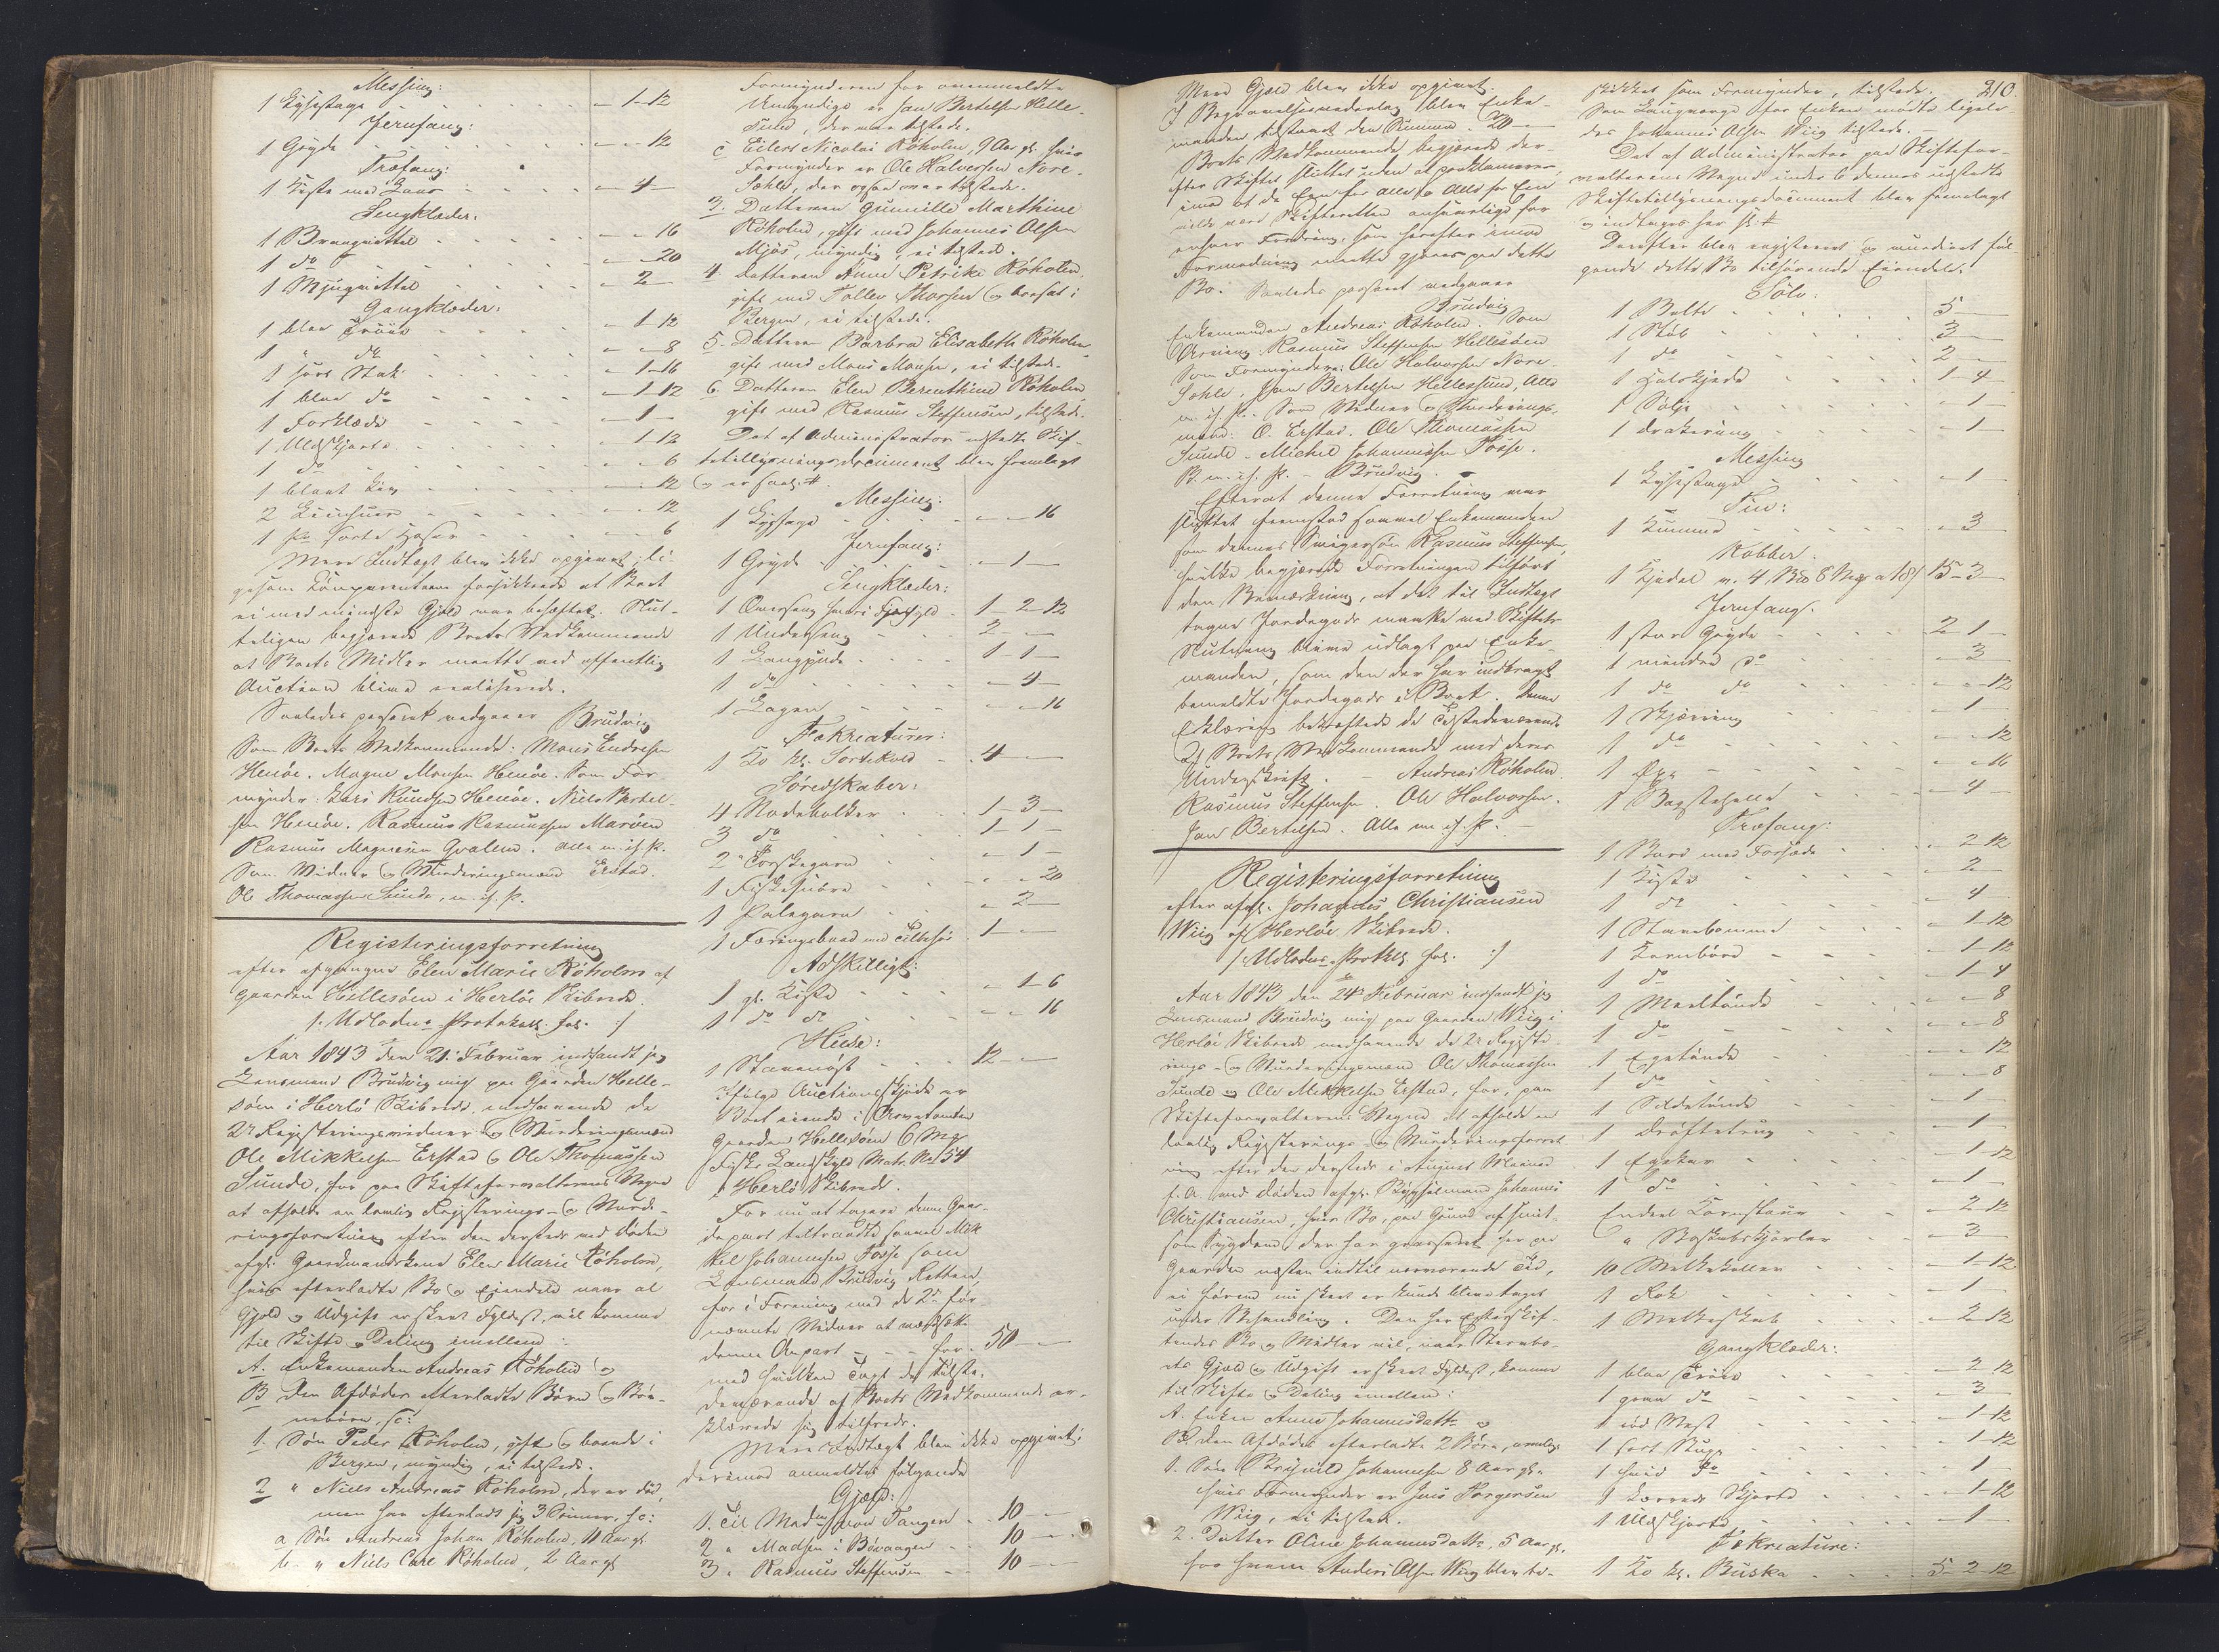 Messing:
1 Lysestage - 1-12
Jernfang:
1 Gryde - - 12
Træfang:
1 Kiste med Laas - 4 -
Sengklæder:
1 Branquittel - - 16
1 do - - 20
1 - 2 -
Gangklæder:
1 blaa Trøie - 1-12
1 do - - 8
1 sort Stak - 1-16
1 blaa do - 1-12
1 Forklæde - 1 -
1 Uldskjorte - 1-12
1 do - - 6
1 blaat - - 12
2 - - 12
1 Pr sorte Hoser - - 6
Mere Indtægt blev ikke opgivet, li-
gesom Comparenterne forsikkrede at Boet
ei med mindste Gjæld var behæftet. Slut-
teligen begjærede Boets Vedkommende
at Boets Midler maatte ved offentlig
Auction blive realiserede.
Saaledes passeret vedgaaer Brudvig
Som Boets Vedkommende: Mons Endresen
Henøe. Magne Monsen Henøe. Som For-
mynder: Lars Knudsen Henøe. Niels Bertel-
sen Henøe. Rasmus Rasmussen Marøen
Rasmus Magnesen Qvalen. alle m. i. P.
Som Vidner og Vurderingsmænd Erstad.
Ole Thomassen Sunde, m. i. P.
Registeringsforretning
efter afgangne Elen Marie Røholm af
gaarden Hillesøen i Herløe Skibrede.
/: Udlodns Protokoll fol. :/
Aar 1843 den 21. Februar indfandt jeg
Lensmand Brudvig mig paa Gaarden Helle-
søen i Herlø Skibrede, medhavende de
2de Registeringsvidner og Vurderingsmænd
Ole Mikkelsen Erstad og Ole Thomassen
Sunde, for paa Skifteforvalterens Vegne
at afholde en lovlig Registerings- og Vurde-
ringsforretning efter den dersteds ved Døden
afgl. Gaardmandskone Elen Marie Røholm,
hvis efterladte Bo og Eiendele naar al
Gjæld og Udgift er skeet Fyldest, vil komme
til Skifte og Deling imellem:
A. Enkemanden Andreas Røholm og
B den Afdødes efterladte Børn og Bør-
nebørn, sc:
1. Søn Peder Røholm, gift og boende i
Bergen, myndig, ei tilstede.
2 " Niels Andreas Røholm, der er død,
men har efterladt sig 3 Sønner, sc:
a Søn Andreas Johan Røholm, 11 Aar gl
b. " Niels Carl Røholm, 20 Aar gl
Formynderen for ovenmeldte
Umyndige er Jan Bertelsen Helle-
sund, der var tilstede.
c Eilert Nicolai Røholm, 9 Aar gl. hvis
Formynder er Ole Halvorsen Nore-
Sæhle, der ogsaa var tilstede.
3. Datteren Gunnille Marthine
Røholm, gift med Johannes Olsen
Mjøs, myndig, ei tilstede.
4. Datteren Anne Petrike Røholm.
gift med Tollev Thorsen og bosat i
Bergen, ei tilstede.
5. Datteren Barbra Elisabeth Røholm
gift med Mons Monsen, ei tilstede.
6. Datteren Elen Berenthine Røholm
gift med Rasmus Steffensen, tilstede.
Det af Administrator udstedte Skif-
tetillysningsdocument blev fremlagt
og er saal. #.
Messing:
1 Lysstage - - 16
Jernfang:
1 Gryde - 1 -
Sengklæder:
1 Overseng - 1-2-12
1 Underseng 2 - -
1 Langpude 1-1 -
1 do - 4 -
1 Lagen - - 16
Fækreaturer:
1 Ko kl. Sortekold - 4 - -
Søredskaber:
4 Nodebolker 1-3 -
3 do 1-1 -
2 " Torskegarn - 1 -
1 Fiskesnøre - - 20
1 Palegarn - 2 -
1 Færingsbaad med Tilbehør 1 - -
Adskilligt:
1 gl. Kiste - 1-6
1 do do - - 16
Huse:
1 Stavenøst - 12 - -
Ifølge Auctionsskjøde er
Boet eiende i
Gaarden Hellesøen 6 Mrg
Fiske Landskyld Matr. No 54
i Herlø Skibrede.
For nu at taxere denne Gaar-
depart tiltraadte saavel Mik
kel Johannesen Fosse som
Lensmand Brudvig Retten,
for i Forening med de 2de for-
nævnte Vidner at værdsætte
denne Olepart - - for. 50 -
med hvilken Taxt de tilste-
deværende af Boets Vedkommende er-
klærede sig tilfreds.
Mere Indtægt blev ikke opgivet;
derimod anmeldtes følgende
Gjæld:
1. Til Mad. von Tangen - 10 -
2 " Madsen i Bøvaagen - 10 -
3 " Rasmus Steffensen - 10 -
Mere Gjæld blev ikke opgivet.
I Begravelsesvederlag blev Enke-
manden tilstaaet den Summa 20 -
Boets Vedkommende begjærede der-
efter Skiftet sluttet uden at proklamere
imod at de Een for alle og Alle for Een
vilde være Skifteretten ansvarlige for
enhver Fordring, som herefter imod
Formodning maatte gjøres paa dette
Bo. Saaledes passeret vedgaaer
Brudvig
Enkemanden Andreas Røholm. Som
Arving: Rasmus Steffensen Hellesøen
Som Formyndere: Ole Halvorsen Nore-
Sæhle, Jan Bertelsen Hellesund, Alle
m. i. P. Som Vidner og Vurderings-
mænd: O. Erstad. Ole Thomassen
Sunde - Michel Johannesen Fosse.
P. m. i. P. - Brudvig.
Efterat denne Forretning var
sluttet fremstod saavel Enkemanden
som dennes Svigersøn Rasmus Steffensen,
hvilke begjærede Forretningen tilført
den Bemærkning, at det til Indtægt
tagne Jordegods maatte ved Skiftets
Slutning blive udlagt paa Enke-
manden, som den der har indbragt
bemeldte Jordegods i Boet. Denne
Erklæring bekræftede de Tilstedeværende
af Boets Vedkommende med deres
Underskrift. - Andreas Røholm.
Rasmus Steffensen. Ole Halvorsen.
Jan Bertelsen. Alle m. i. P. -
Registeringsforretning
efter afgl. Johannes Christiansen
Wiig af Herløe Skibrede.
/: Udlodns Protkl. fol. :/
Aar 1843 den 24de Februar indfandt jeg
Lensmand Brudvig mig paa Gaarden Wiig i
Herløe Skibrede medhavende de 2de Registe-
rings- og Vurderingsmænd Ole Thomassen
Sunde og Ole Mikkelsen Erstad, for, paa
Skifteforvalterens Vegne at afholde en
lovlig Registerings- og Vurderingsforret
ning efter den dersteds i August Maaned
f. A. ved Døden afgl. Bygselmand Johannes
Christiansen, hvis Bo, paa Grund af smit-
som Sygdom, der har grasseret her paa
Gaarden næsten indtil nærværende Tid,
ei førend nu skeet er kunde blive taget
under Behandling. Den her Efterskif-
tendes Bo og Midler vil, naar Stervbo-
ets Gjæld og Udgift er skeet Fyldest, komme
til Skifte og Deling imellem:
A. Enken Anne Johannesdatter og
B. den Afdødes efterladte 2 Børn, nemlig:
1. Søn Brynild Johannesen 8 Aar gl.
hvis Formynder er Jens Torgersen
Wiig, ei tilstede.
2. Datter Oline Johannesdatter, 5 Aar gl.
for hvem Anders Olsen Wiig blev be-
210.
skikket som Formynder, tilstede.
Som Laugværge for Enken mødte ligele-
des Johannes Olsen Wiig tilstede. -
Det af Administrator paa Skiftefor-
valterens Vegne under 6 dennes udstedte
Skiftetillysningsdocument blev fremlagt
og indtages her sc. #
Derefter blev registeret og vurderet føl
gende dette Bo tilhørende Eiendele:
Sølv:
1 Belte 5 - -
1 Støb 3 - -
1 do 2 - -
1 Halskjæde 1-4 -
1 Sølje - 1 -
1 - 1 -
Messing
1 Lysestage - 1 -
Tin:
1 Kumme - 3
Kobber.
1 Kjedel v. 4 Bpd 6 Mrk a 18/ 15-3 -
Jernfang.
1 stor Gryde 2-1 -
1 mindre do - 3 -
1 do do - - 12
1 Skjæring - 1 -
1 do - - 12
1 Øxe - - 16
1 Bagstehelle - 4 -
Træfang:
1 Bord med Forsæde - 2-12
1 Kiste - 2 -
1 do - 4
1 Stavebomme - 1-12
1 Kornbøre - 1-12
1 do - 1-4
1 Meeltønde - - 8
1 do - - 8
1 Egetønde - - 12
1 do - - 8
1 Sildetønde - 1 -
1 Drøftetrug - 1 -
1 Egekar - 1-12
1 do - 1 -
Endeel Kornstaur - 2-12
" Boskabskjørler - 3 -
10 Melkekoller - 1-12
1 Rok - 1 -
1 Melkeskab - 2-12
Gangklæder:
1 blaa Trøie - 2-12
1 graa do - 3 -
1 rød Vest - 1-12
1 sort Buxe - 1-12
1 hvid do - 1 -
1 Lærreds Skjorte - 1-12
1 Uldskjorte - 1 -
Fækreature:
1 Ko kl. Buska 5-2-12